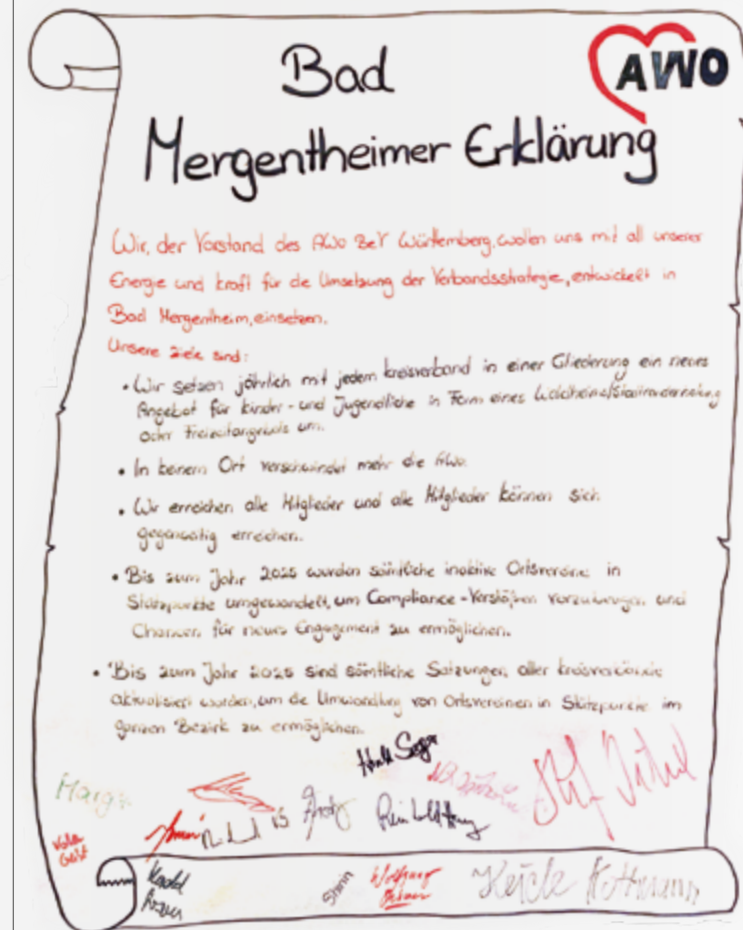 AWO
Bad
Mergentheimer Erklärung
Wir, der Vorstand des AWO BeV Württemberg, wollen uns mit all unserer
Energie und Kraft für die Umsetzung der Verbandsstrategie, entwickelt in
Bad Mergentheim, einsetzen.
Unsere Ziele sind:
• Wir setzen jährlich mit jedem Kreisverband in einer Gliederung ein neues
Angebot für Kinder- und Jugendliche in Form eines
oder Freizeitangebots um.
• In keinem Ort verschwindet mehr die AWO.
• Wir erreichen alle Mitglieder und alle Mitglieder können sich
gegenseitig erreichen.
• Bis zum Jahr 2025 wurden sämtliche inaktive Ortsvereine in
Stützpunkte umgewandelt, um Compliance-Verstößen vorzubeugen und
Chancen für neues Engagement zu ermöglichen.
• Bis zum Jahr 2025 sind sämtliche Satzungen aller Kreisverbände
aktualisiert worden, um die Umwandlung von Ortsvereinen in Stützpunkte im
ganzen Bezirk zu ermöglichen.
Wolfgang
Heide